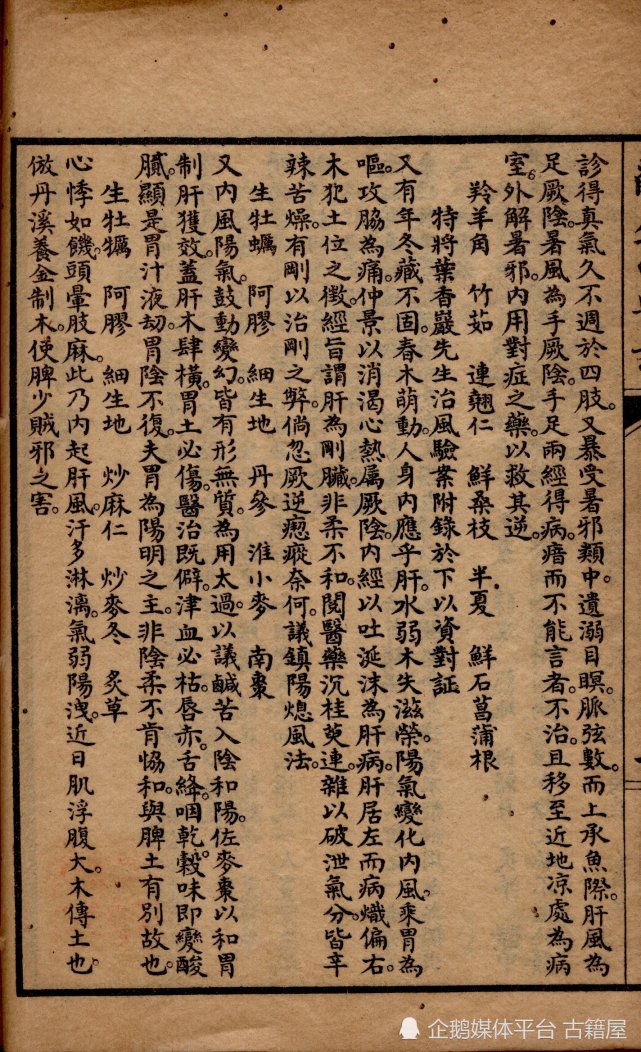 診得真氣久不週於四肢。又暴受暑邪類中。遺溺目瞑。脈弦數。而上承魚際。肝風為
足厥陰。暑風為手厥陰。手足兩經得病。瘖而不能言者。不治。且移至近地涼處為病
室。外解暑邪。内用對症之藥。以救其逆。
羚羊角 竹茹 連翹仁 鮮桑枝 半夏 鮮石菖蒲根
特將葉香巖先生治風驗案附錄於下以資對証
又有年冬藏不固。春木萌動。人身内應乎肝。水弱木失滋榮。陽氣變化内風。乘胃為
嘔。攻脇為痛。仲景以消渴心熱属厥陰。内經以吐涎沫為肝病。肝居左而病熾偏右。
木犯土位之徵。經旨謂肝為剛臟。非柔不和。閱醫藥沉桂萸連。雜以破泄氣分。皆辛
辣苦燥。有剛以治剛之弊。倘忽厥逆瘛瘲奈何。議鎮陽熄風法。
生牡蠣 阿膠 細生地 丹參 淮小麥 南棗
又内風陽氣。鼓動變幻。皆有形無質。為用太過。以議鹹苦入陰和陽。佐麥棗以和胃
制肝獲效。蓋肝木肆橫。胃土必傷。醫治既僻。津血必枯。唇赤。舌絳。咽乾。穀味即變酸
膩。顯是胃汁液刧。胃陰不復。夫胃為陽明之主。非陰柔不肯協和。與脾土有別故也。
生牡蠣 阿膠 細生地 炒麻仁 炒麥冬 炙草
心悸如饑。頭暈肢麻。此乃内起肝風。汗多淋漓。氣弱陽洩。近日肌浮腹大。木傳土也。
倣丹溪養金制木。使脾少賊邪之害。
企鹅媒体平台 古籍屋